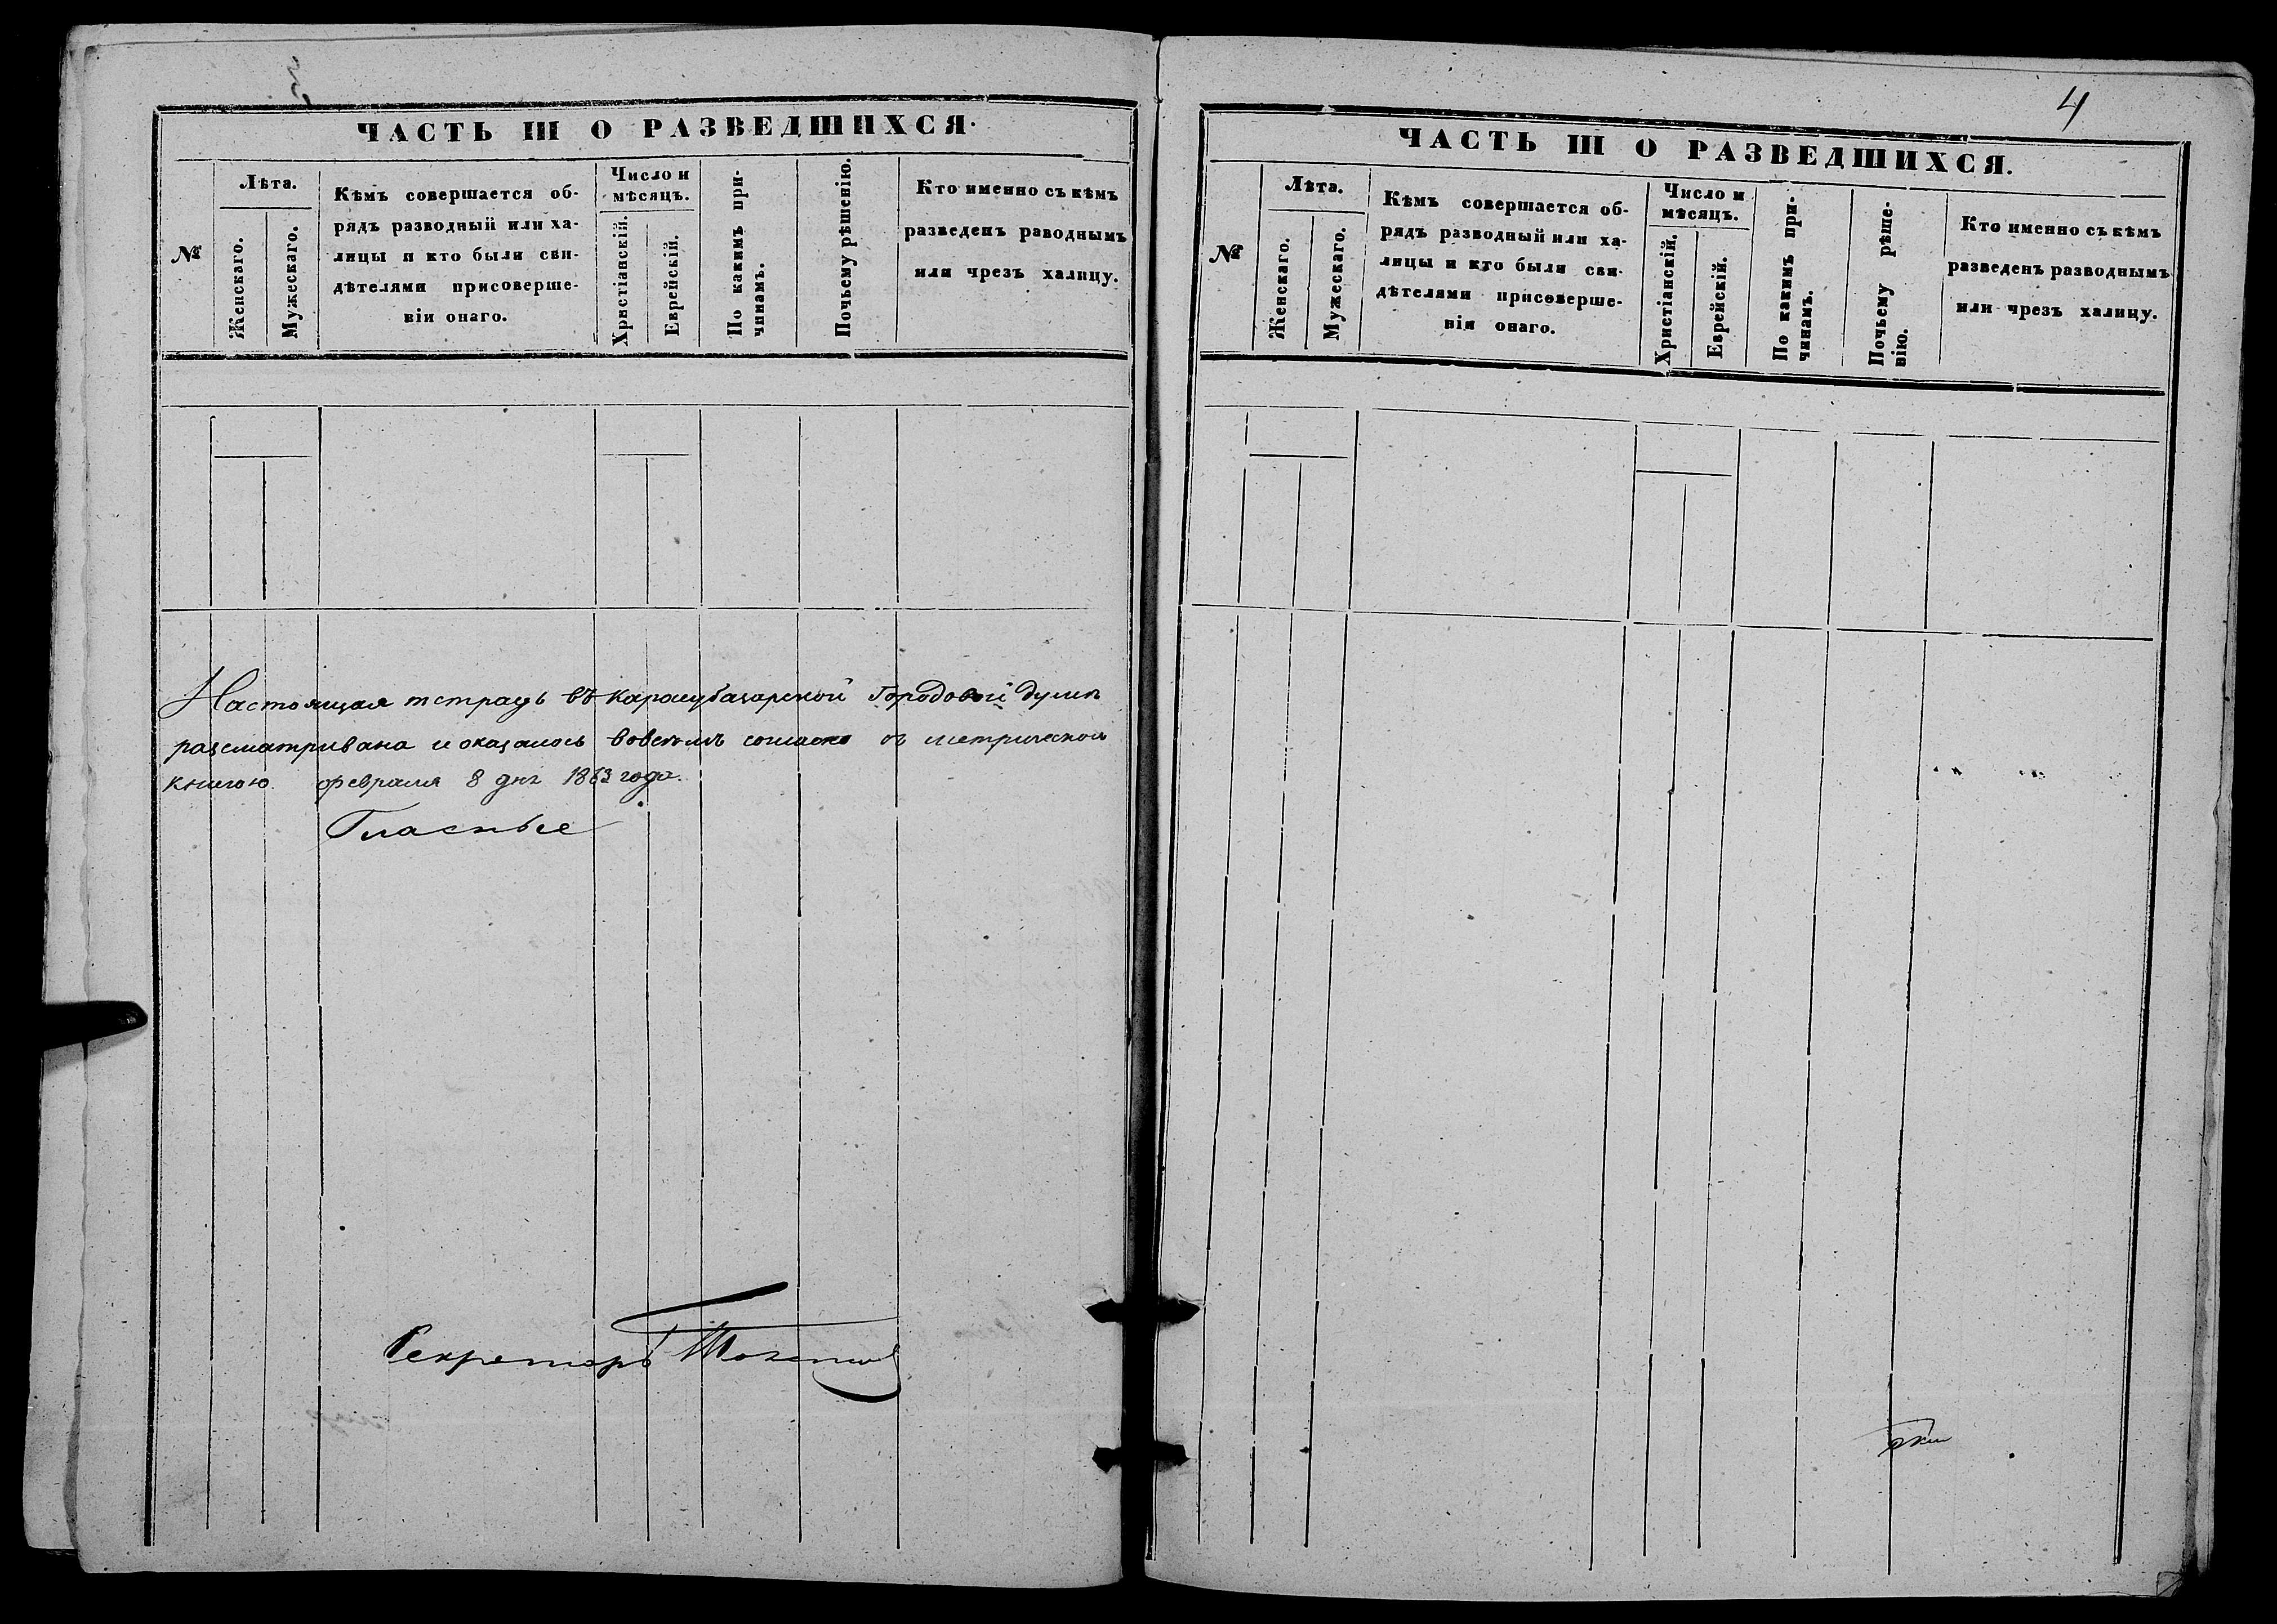 ЧАСТЬ III О РАЗВЕДШИХСЯ.
№
Лѣта.
Женскаго.
Мужескаго.
Кѣмъ совершается об-
рядъ разводный или ха-
лицы и кто были сви-
дѣтелями присоверше-
ніи онаго.
Число и
мѣсяцъ.
Христіанскій.
Еврейскій.
По какимъ при-
чинамъ.
Почьему рѣшенію.
Кто именно съ кѣмъ
разведенъ раводнымъ
или чрезъ халицу.
Настоящая тетрадь въ Карасубазарской Городовой думѣ
разсматривана и оказалось вовсемъ согласно съ метрическою
книгою февраля 8 дня 1863 года.
Гласные
Секретарь
4
ЧАСТЬ III О РАЗВЕДШИХСЯ.
№
Лѣта.
Женскаго.
Мужескаго.
Кѣмъ совершается об-
рядъ разводный или ха-
лицы и кто были сви-
дѣтелями присоверше-
ніи онаго.
Число и
мѣсяцъ.
Христіанскій.
Еврейскій.
По какимъ при-
чинамъ.
Почьему рѣше-
нію.
Кто именно съ кѣмъ
разведенъ разводнымъ
или чрезъ халицу.